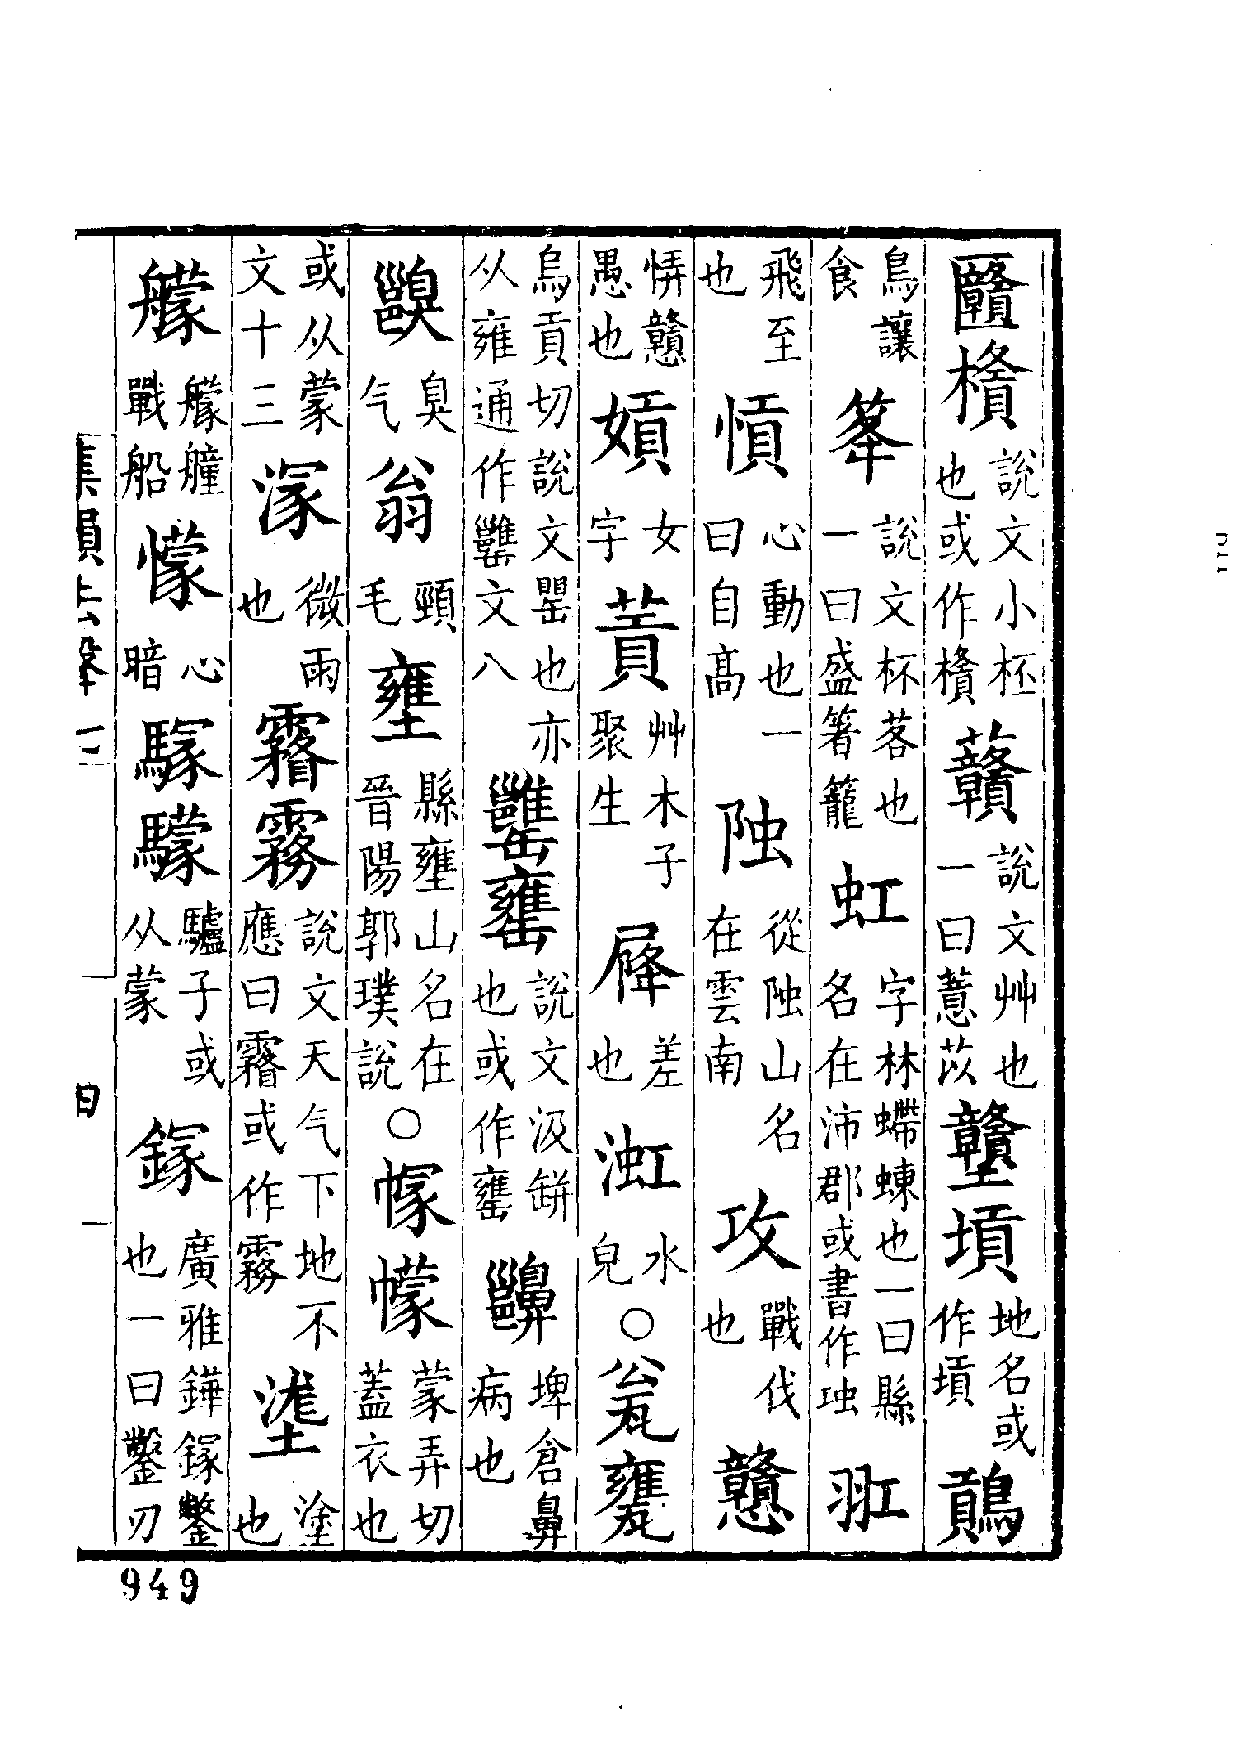 匵㯯說文小杯也或作㯯贛說文艸也一曰薏苡贛墳地名或作墳鵍
鳥讓食夆說文杯落也一曰盛箸籠虹字林螮蝀也一曰縣名在沛郡或書作䖝羾
飛至也慣心動也一曰自高䧆從䧆山名在雲南攻戰伐也戇
愩戇愚也㜏女字䔈艸木子聚生屪差也渱水皃○瓮甕
烏貢切說文罌也亦从雍通作罋文八罋罋說文汲缾也或作罋齆埤倉鼻病也
齆臭气翁頸毛壅縣壅山名在晉陽郭璞說○幏幪蒙弄切蓋衣也
或从蒙文十三溕微雨也霿霧說文天气下地不應曰霿或作霧塗也
艨艨艟戰船懞心暗騄驢子或从蒙鎵廣雅鏵鎵鐅也一曰鑿刃
集韻去聲一
四
949